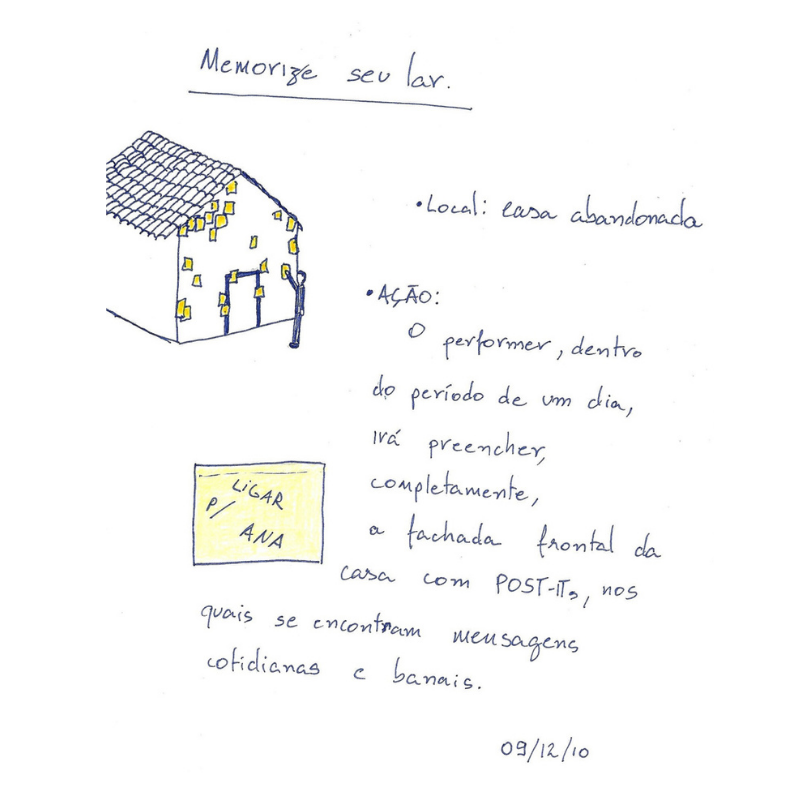 Memorize seu lar.
•Local: casa abandonada
•AÇÃO:
O performer, dentro
do período de um dia,
irá preencher,
completamente,
a fachada frontal da
casa com POST-ITs, nos
quais se encontram mensagens
cotidianas e banais.
LIGAR
P/
ANA
09/12/10